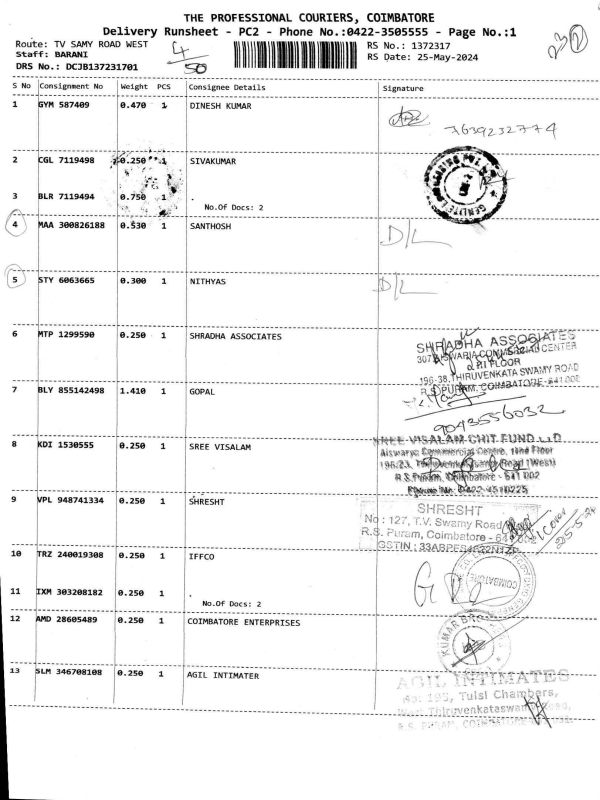 THE PROFESSIONAL COURIERS, COIMBATORE
Delivery Runsheet - PC2 - Phone No.:0422-3505555 - Page No.:1
Route: TV SAMY ROAD WEST
Staff: BARANI
DRS No.: DCJB137231701
4/50
RS No.: 1372317
RS Date: 25-May-2024
S No Consignment No Weight PCS Consignee Details Signature
1 GYM 587409 0.470 1 DINESH KUMAR
7639232774
2 CGL 7119498 0.250 1 SIVAKUMAR
3 BLR 7119494 0.750 1 .
No.Of Docs: 2
4 MAA 300826188 0.530 1 SANTHOSH D/L
5 STY 6063665 0.300 1 NITHYAS D/L
6 MTP 1299590 0.250 1 SHRADHA ASSOCIATES
SHRADHA ASSOCIATES
307, AISWARIA COMMERCIAL CENTER
FLOOR
196-38, THIRUVENKATA SWAMY ROAD
R.S. PURAM, COIMBATORE - 641 002
7 BLY 855142498 1.410 1 GOPAL
9043556032
8 KDI 1530555 0.250 1 SREE VISALAM
SREE VISALAM CHIT FUND LTD
Aiswarya Commercial Centre, IInd Floor
Road (West)
R.S. Puram, Coimbatore - 641 002
9 VPL 948741334 0.250 1 SHRESHT
SHRESHT
No : 127, T.V. Swamy Road
R.S. Puram, Coimbatore - 641 002
25-5-24
10 TRZ 240019308 0.250 1 IFFCO
COIMBATORE
11 IXM 303208182 0.250 1 .
No.Of Docs: 2
12 AMD 28605489 0.250 1 COIMBATORE ENTERPRISES
KUMAR BRO
13 SLM 346708108 0.250 1 AGIL INTIMATER
AGIL INTIMATES
No: 195, Tulsi Chambers,
West Thiruvenkataswamy Road,
R.S. PURAM, COIMBATORE